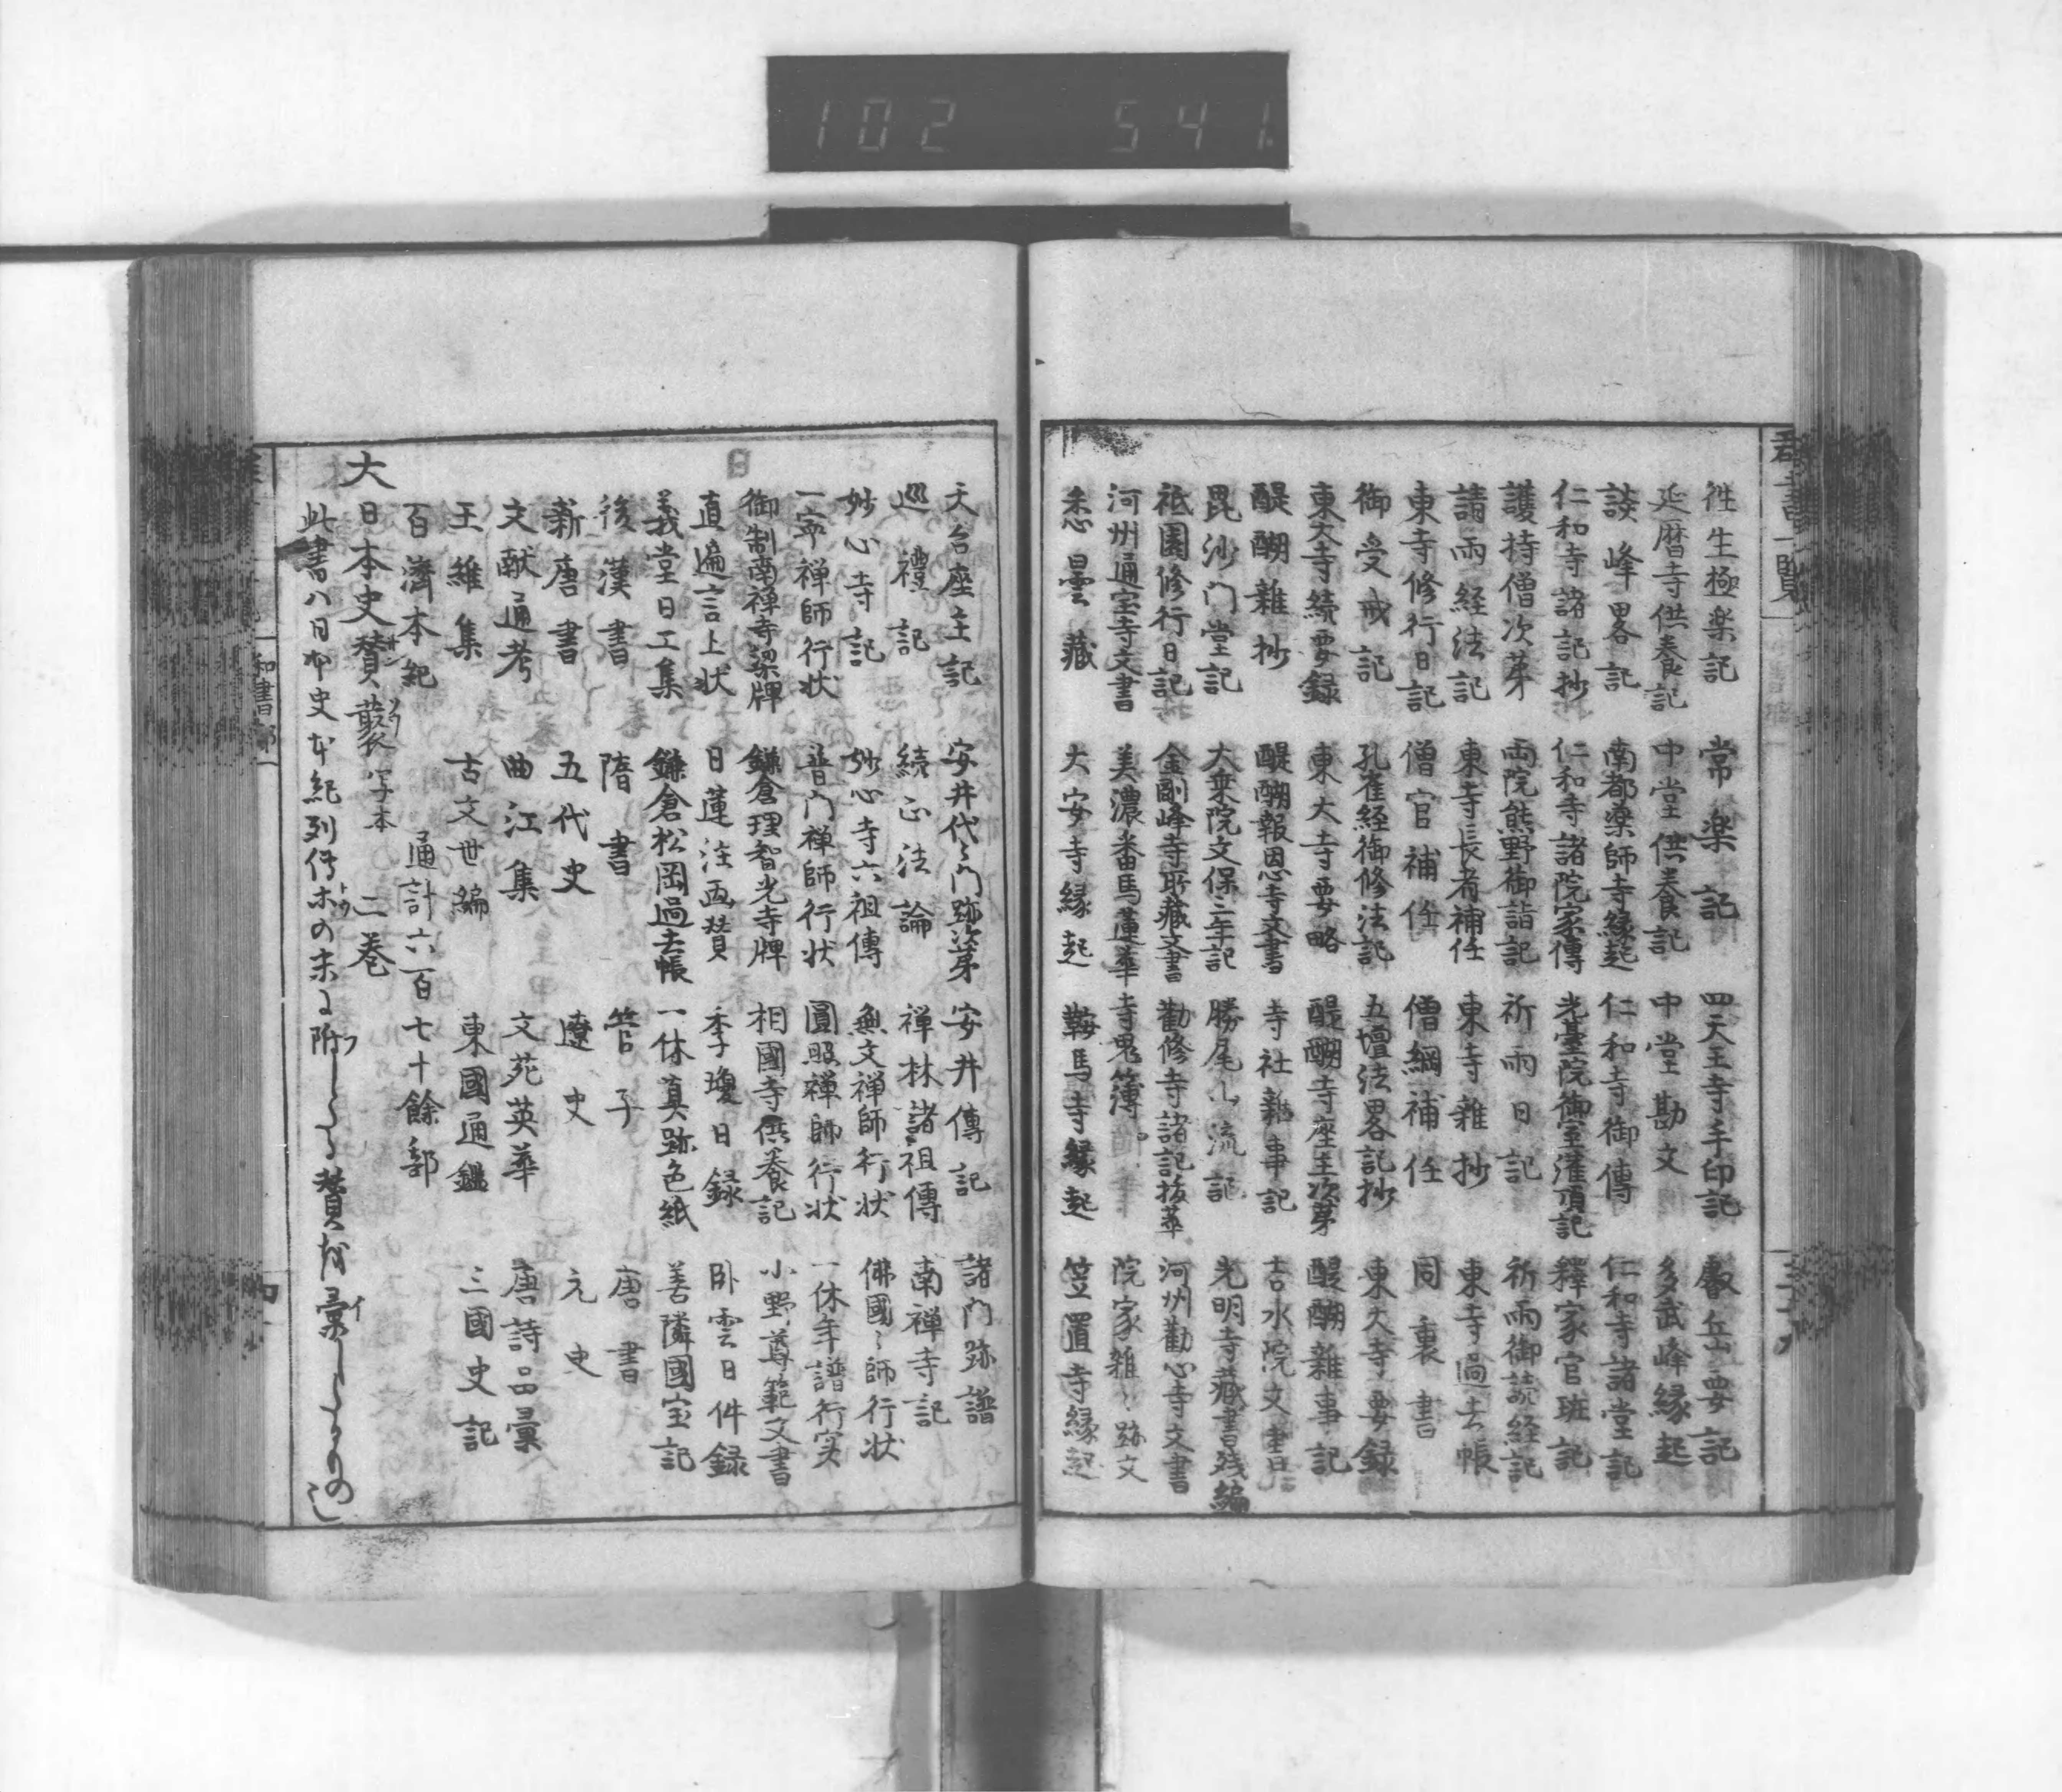 102 541
群書一覧
往生極楽記 常楽記 四天王寺手印記 叡岳要記
延暦寺供養記 中堂供養記 中堂勘文 多武峰縁起
談峰畧記 南都薬師寺縁起 仁和寺御傳 仁和寺諸堂記
仁和寺諸記抄 仁和寺諸院家傳 光臺院御室灌頂記 釋家官班記
護持僧次第 両院熊野御詣記 祈雨日記 祈雨御読経記
請雨経法記 東寺長者補任 東寺雑抄 東寺過去帳
東寺修行日記 僧官補任 僧綱補任 同裏書
御受戒記 孔雀経御修法記 五壇法畧記抄 東大寺要録
東大寺続要録 東大寺要略 醍醐寺座主次第 醍醐雑事記
醍醐雑抄 醍醐報恩寺文書 寺社雑事記 吉水院文書
毘沙门堂記 大乗院文保三年記 勝尾山流記 光明寺蔵書残編
祇園修行日記 金剛峰寺所藏文書 勸修寺諸記抜萃 河州勸心寺文書
河州通宝寺文書 美濃番馬蓮華寺鬼簿 院家雑々跡文
悉曇藏 大安寺縁起 鞍馬寺縁起 笠置寺縁起
天台座主記 安井代々门跡次第 安井傳記 諸门跡譜
巡禮記 続正法論 禅林諸祖傳 南禅寺記
妙心寺記 妙心寺六祖傳 無文禅師行状 佛國々師行状
一寧禅師行状 普门禅師行状 圓照禅師行状 一休年譜行实
御制南禅寺梁牌 鎌倉理智光寺牌 相國寺供養記 小野尊範文書
直遍言上状 日蓮注画賛 季瓊日録 卧雲日件録
義堂日工集 鎌倉松岡過去帳 一休真跡色紙 善隣國宝記
後漢書 隋書 管子 唐書
新唐書 五代史 遼史 元史
文献通考 曲江集 文苑英華 唐詩品彙
王維集 古文世編 東國通鑑 三國史記
百濟本紀 通計六百七十餘部
大日本史賛藪 写本 二巻
此書ハ日本史本紀列傳ホの末に附したる賛を彙したるもの也
和書部